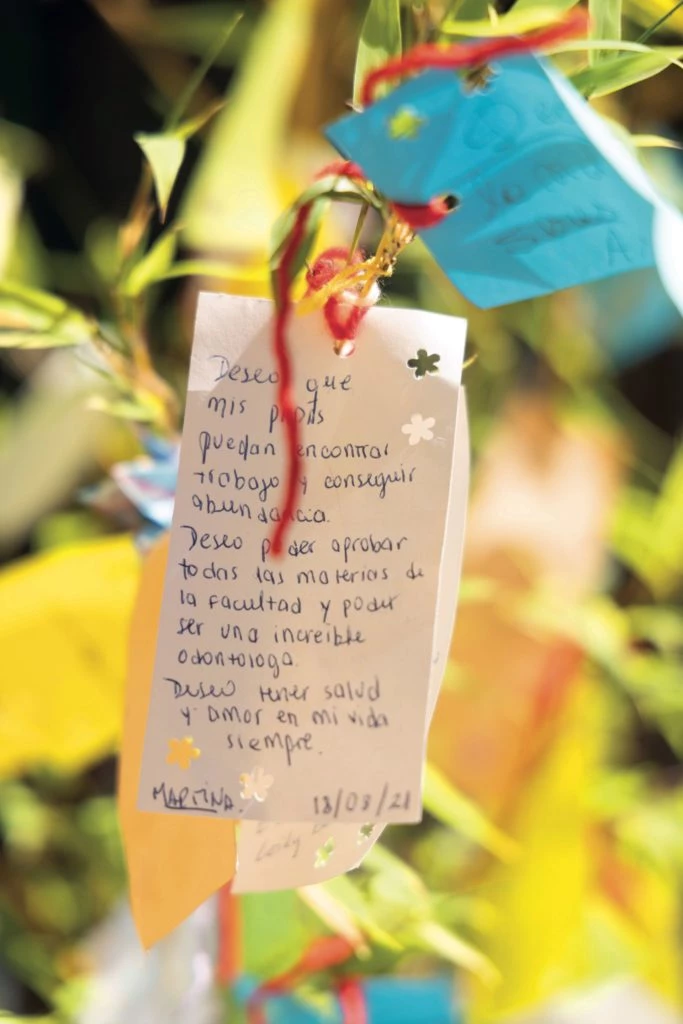 Deseo que
mis papás
puedan encontrar
trabajo y conseguir
abundancia.
Deseo poder aprobar
todas las materias de
la facultad y poder
ser una increible
odontologa.
Deseo tener salud
y amor en mi vida
siempre.
MARTINA. 18/08/21